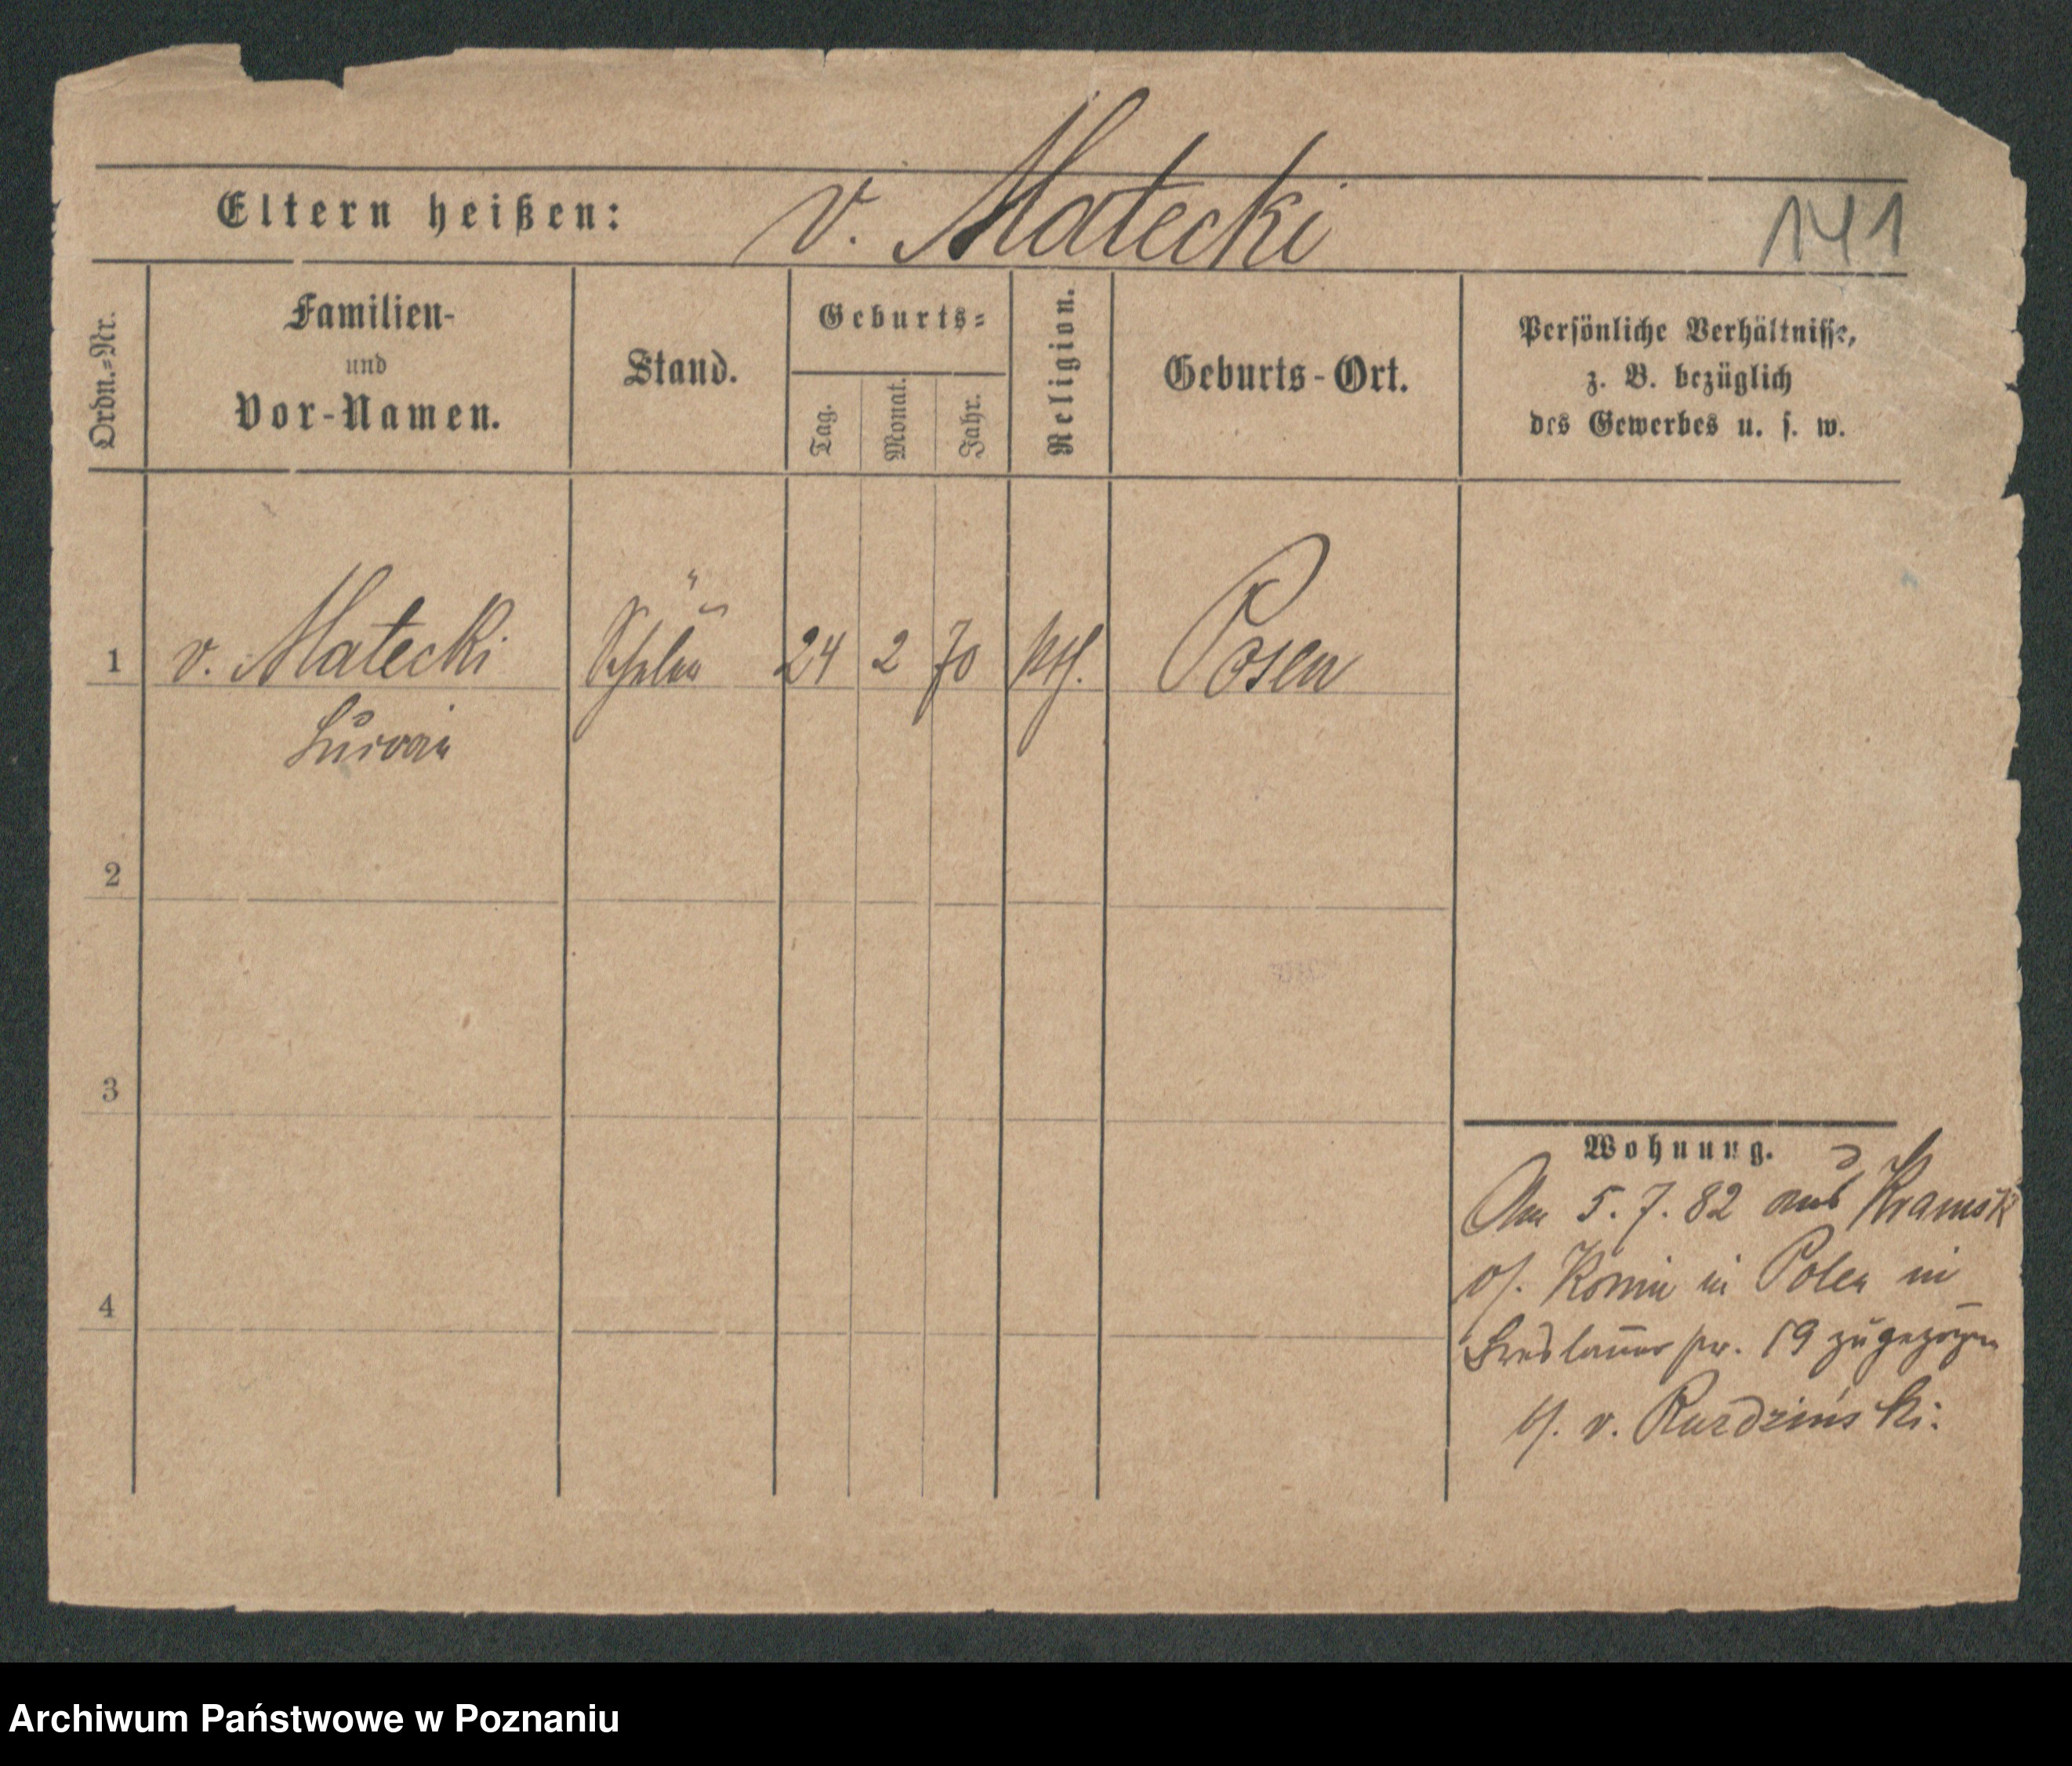 Eltern heißen: v. Matecki 141
Ordn.-Nr.
Familien-
und
Vor-Namen.
Stand.
Geburts-
Tag.
Monat.
Jahr.
Religion.
Geburts-Ort.
Persönliche Verhältnisse,
z. B. bezüglich
des Gewerbes u. s. w.
1 v. Matecki Schüler 24 2 70 kth. Posen
2
3
4
Wohnung.
Am 5.7.82 aus Kramsk
b/. Konin in Polen in
Breslauer str. 19 zugezogen
b/. v. Rudziński.
Archiwum Państwowe w Poznaniu